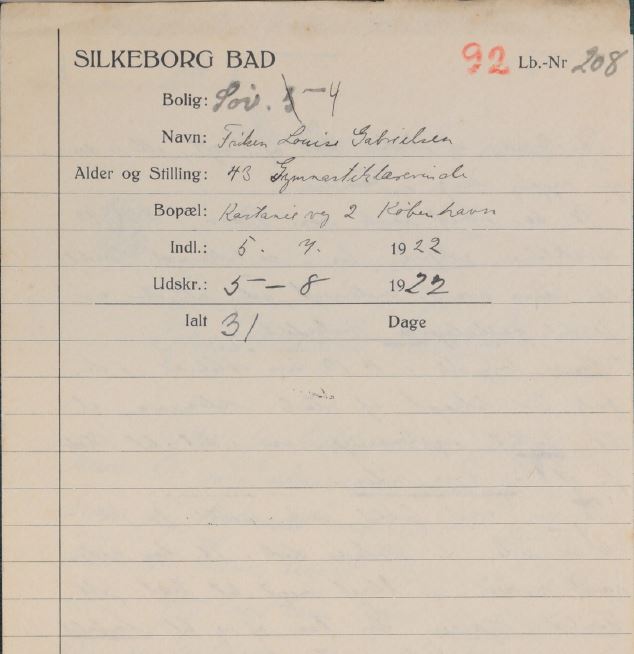 SILKEBORG BAD 92 Lb.-Nr 208
Bolig: Söv. 4
Navn: Frøken Louise Gabrielsen
Alder og Stilling: 43 Gymnastiklærerinde
Bopæl: Kastanievej 2 København
Indl.: 5. 7. 1922
Udskr.: 5 – 8 1922
Ialt 31 Dage